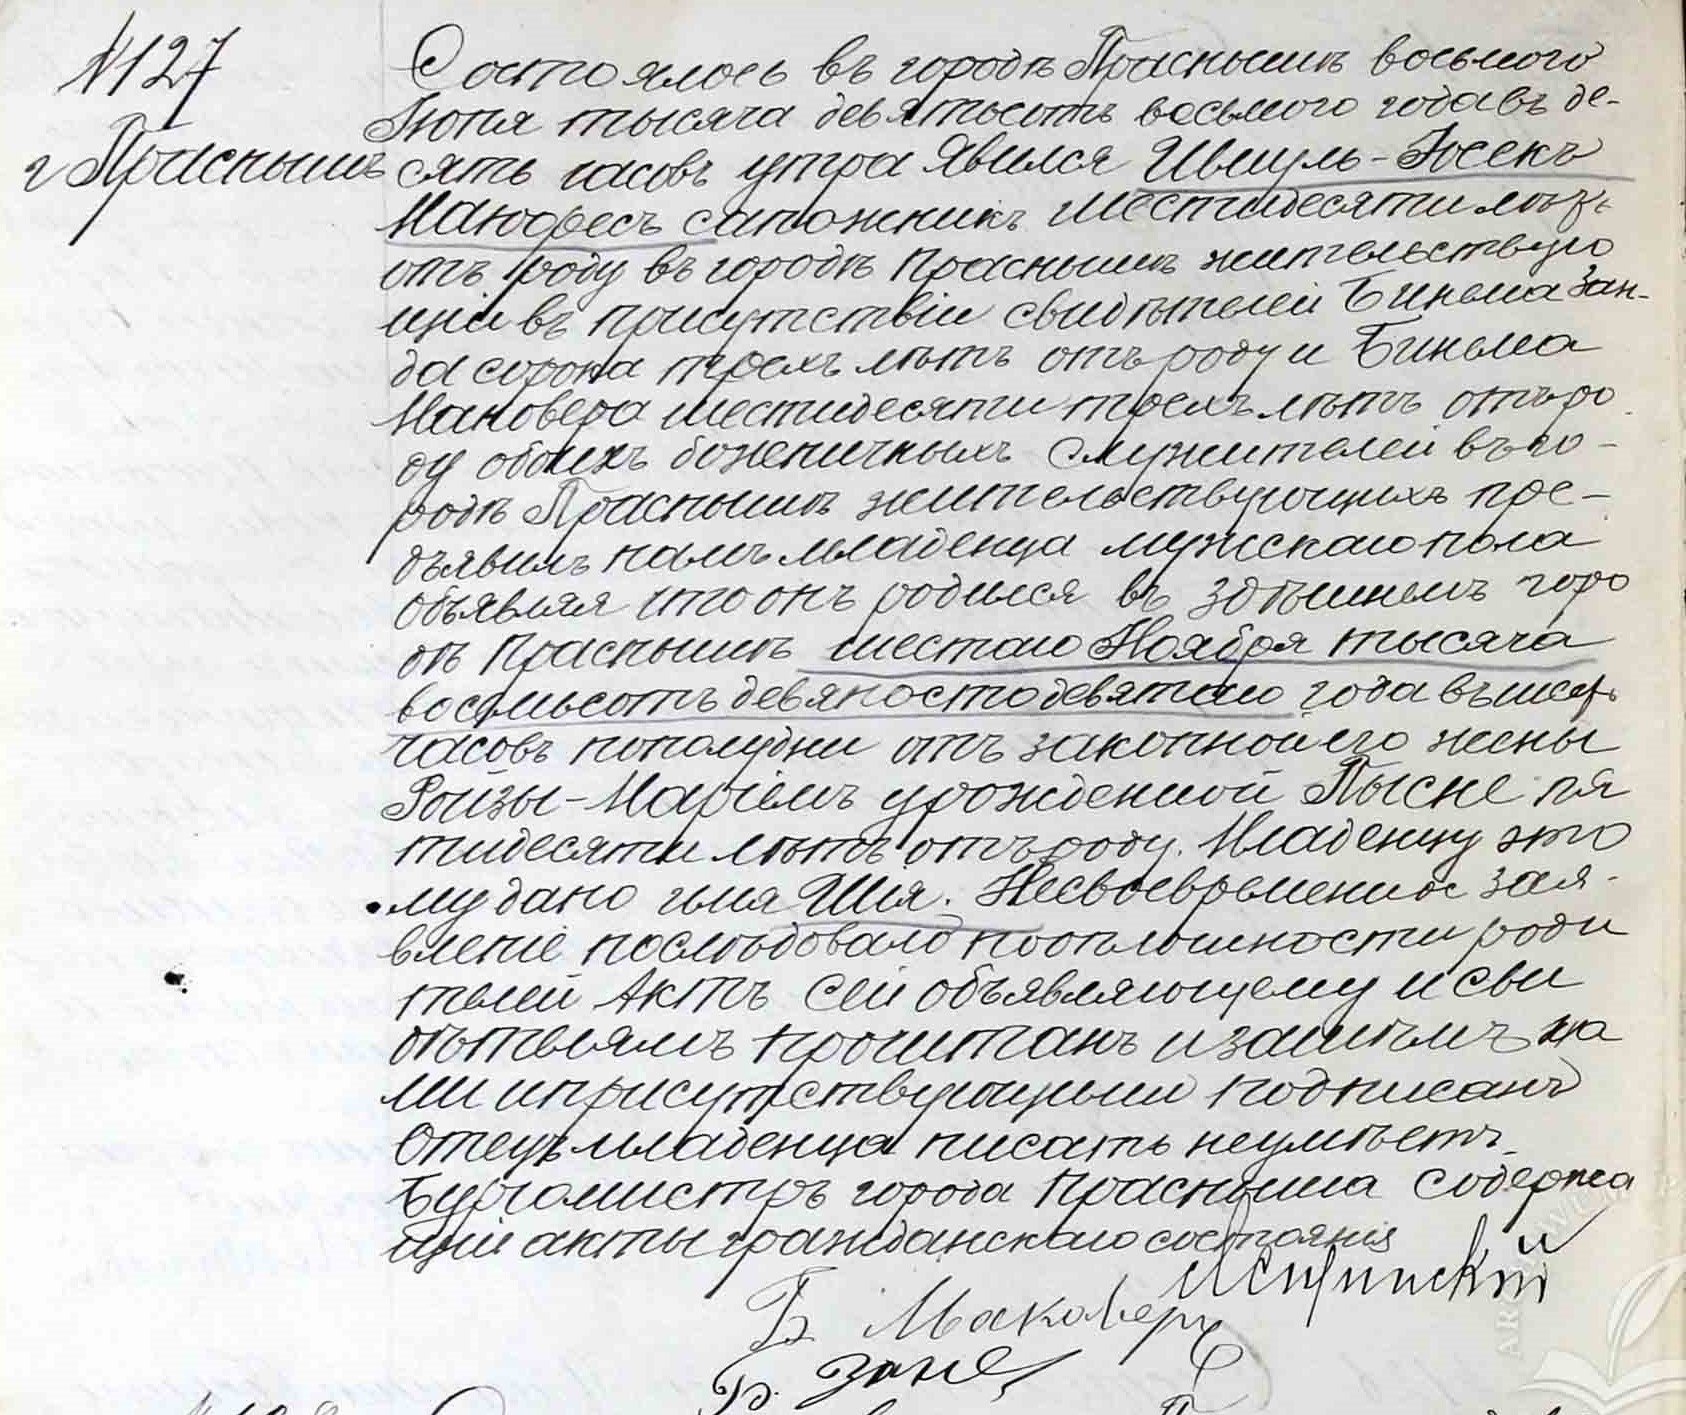 №127
г Праснышъ
Состоялось въ городѣ Праснышѣ восьмого
Іюня тысяча девятьсотъ восьмого года въ де-
сять часовъ утра Явился Шмуль-Іосекъ
сапожникъ шестидесяти лѣтъ
отъ роду въ городѣ Праснышѣ жительствую
щій въ присутствіи свидѣтелей Бинема Зан-
да сорока трехъ лѣтъ отъ роду и Бинема
Маковера шестидесяти трехъ лѣтъ отъ ро
ду обоихъ боженичныхъ служителей въ го-
родѣ Праснышѣ жительствующихъ пре-
дъявилъ намъ младенца мужскаго пола
объявляя что онъ родился въ здѣшнемъ горо
дѣ Праснышѣ шестаго Ноября тысяча
восемьсотъ девяносто девятаго года въ шесть
часовъ пополудни отъ законной его жены
Ройзы-Маріемъ урожденной Пысне пя
тидесяти лѣтъ отъ роду. Младенцу это
му дано имя Шія. Несвоевременное зая-
вленіе послѣдовало по оплошности роди
телей Актъ сей объявляющему и сви
дѣтелямъ прочитанъ и затѣмъ на
ми и присутствующими подписанъ
Отецъ младенца писать не умѣетъ.
Бургомистръ города Прасныша Содержа
щій акты гражданскаго состоянія
Б Маковеръ
Б.